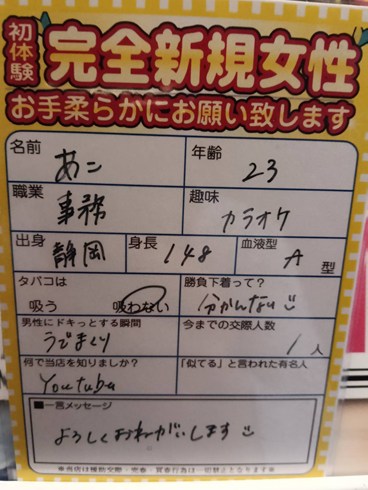 初体験
完全新規女性
お手柔らかにお願い致します
名前 あこ
年齢 23
職業 事務
趣味 カラオケ
出身 静岡
身長 148
血液型 A 型
タバコは 吸う 吸わない
勝負下着って? 分かんない
男性にドキっとする瞬間 うでまくり
今までの交際人数 1人
何で当店を知りましたか? Youtube
「似てる」と言われた有名人
■一言メッセージ
よろしくおねがいします